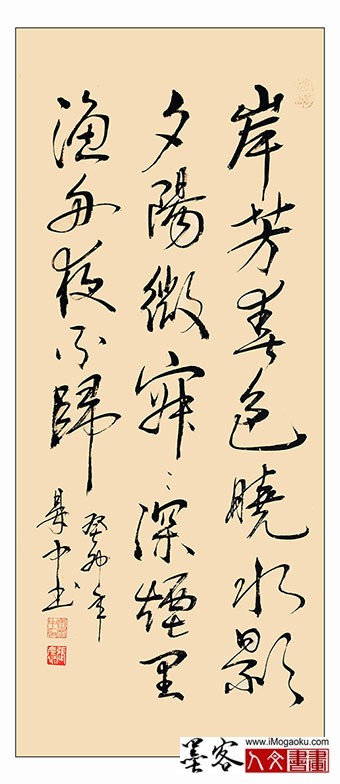 岸芳春色曉水影
夕陽微寂〻深煙里
漁舟夜不歸
癸卯年
中书
墨客
www.iMogaoku.com
人文書畫